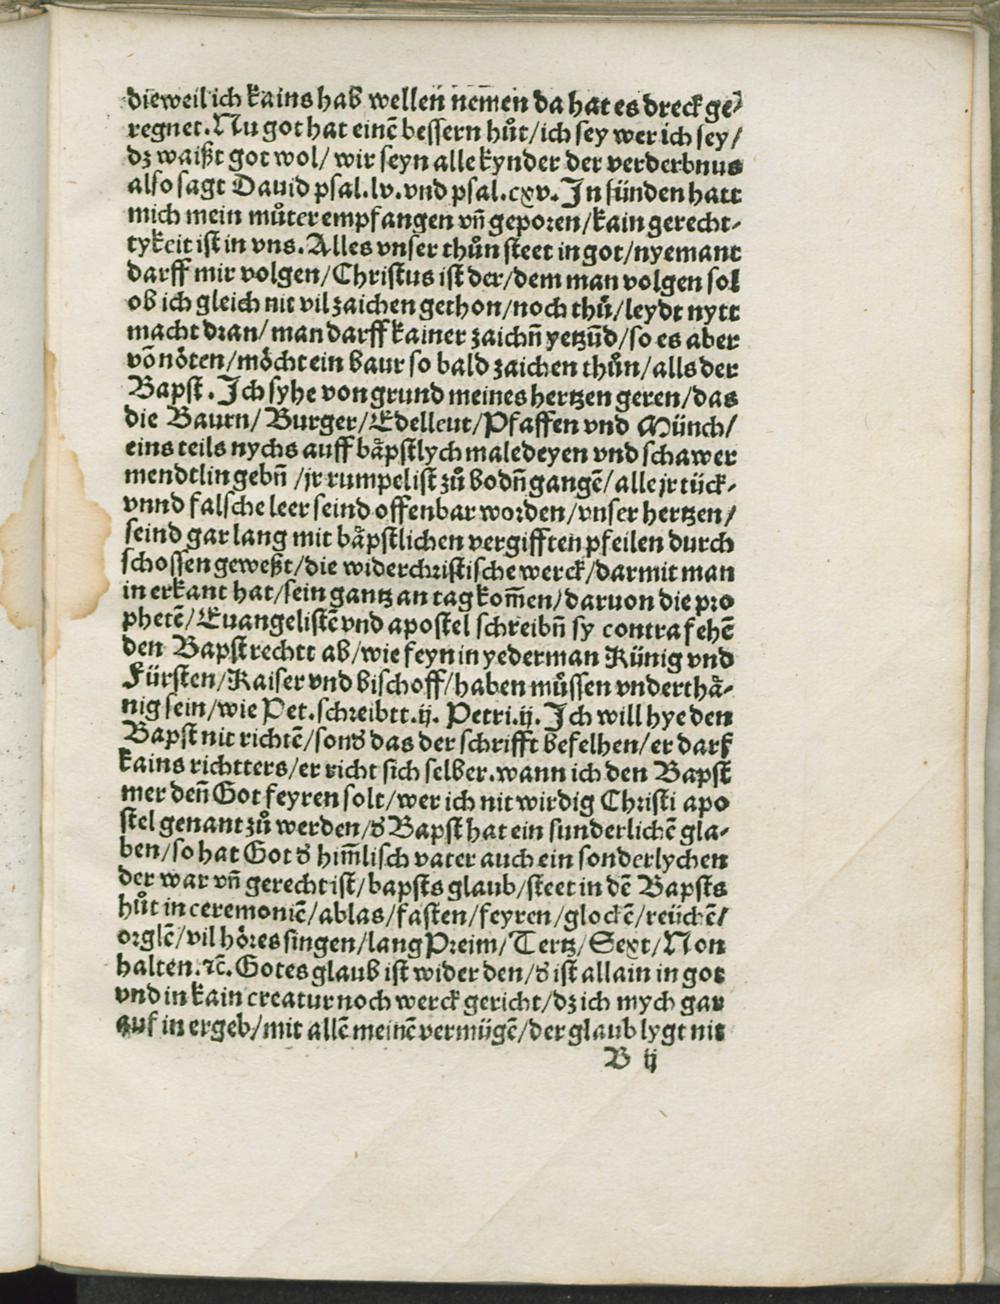 dieweil ich kains hab wellen nemen da hat es dreck ge⸗
regnet. Nu got hat einē bessern hůt/ ich sey wer ich sey/
dz waißt got wol/ wir seyn alle kynder der verderbnus
also sagt Dauid psal. lv. vnd psal. cxv. In sünden hatt
mich mein můter empfangen vn̄ geporen/ kain gerecht⸗
tykeit ist in vns. Alles vnser thůn steet in got/ nyemant
darff mir volgen/ Christus ist der/ dem man volgen sol
ob ich gleich nit vil zaichen gethon/ noch thů/ leydt nytt
macht dran/ man darff kainer zaichn̄ yetzūd/ so es aber
vō nöten/ möcht ein baur so bald zaichen thůn/ alls der
Bapst. Ich syhe von grund meines hertzen geren/ das
die Baurn/ Burger/ Edelleut/ Pfaffen vnd Münch/
eins teils nychs auff bäpstlych maledeyen vnd schawer
mendtlin gebn̄ / jr rumpel ist zů bodn̄ gangē/ alle jr tück⸗
vnnd falsche leer seind offenbar worden/ vnser hertzen/
seind gar lang mit bäpstlichen vergifften pfeilen durch
schossen geweßt/ die widerchristische werck/ darmit man
in erkant hat/ sein gantz an tag kom̄en/ daruon die pro
phetē/ Euangelistē vnd apostel schreibn̄ sy contrafehē
den Bapst rechtt ab/ wie seyn in yederman Künig vnd
Fürsten/ Kaiser vnd bischoff/ haben můssen vnderthä⸗
nig sein/ wie Pet. schreibtt. ij. Petri. ij. Ich will hye den
Bapst nit richtē/ sonď das der schrifft befelhen/ er darf
kains richtters/ er richt sich selber. wann ich den Bapst
mer den̄ Got feyren solt/ wer ich nit wirdig Christi apo
stel genant zů werden/ ď Bapst hat ein sunderlichē gla⸗
ben/ so hat Got ď him̄lisch vater auch ein sonderlychen
der war vn̄ gerecht ist/ bapsts glaub/ steet in dē Bapsts
hůt in ceremoniē/ ablas/ fasten/ feyren/ glockē/ reüchē/
orglē/ vil höres singen/ lang Preim/ Tertz/ Sext/ Non
halten. ⁊c̄. Gotes glaub ist wider den/ ď ist allain in got
vnd in kain creatur noch werck gericht/ dz ich mych gar
auf in ergeb/ mit allē meinē vermügē/ der glaub lygt nit
B ij